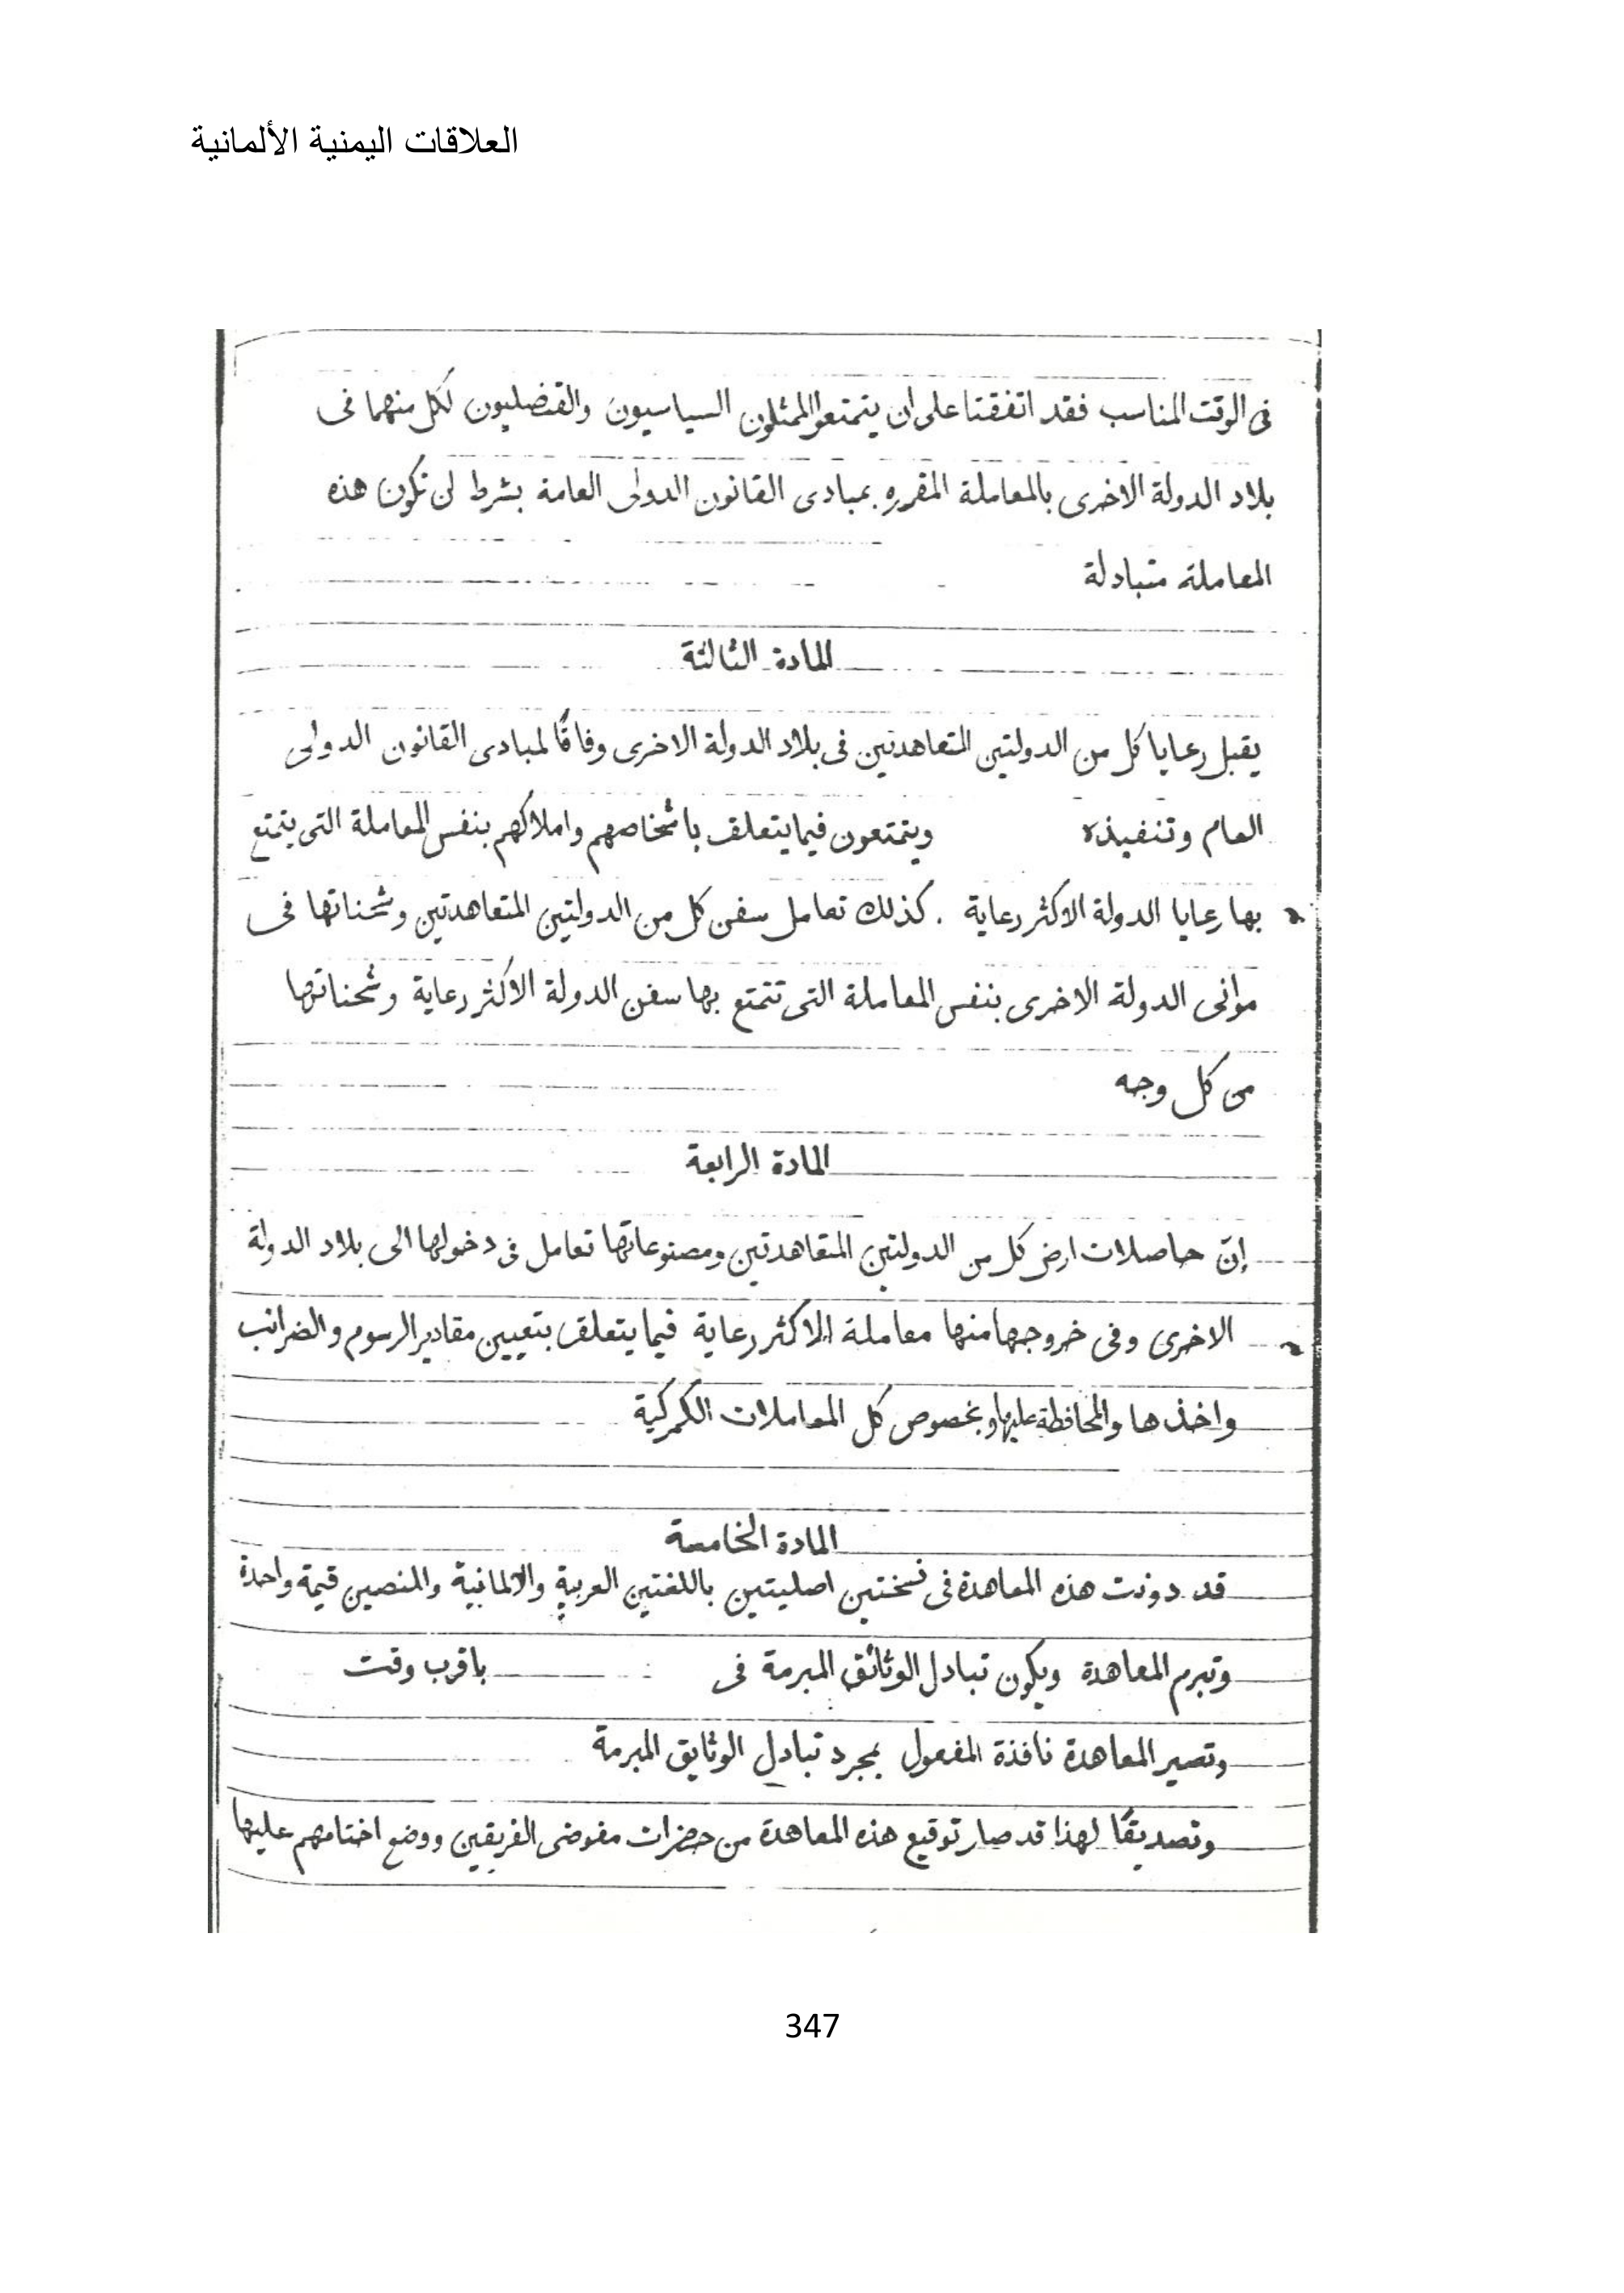 العلاقات اليمنية الألمانية
فى الوقت المناسب فقد اتفقتا على ان يتمتعوا الممثلون السياسيون والقنصليون لكل منهما فى
بلاد الدولة الاخرى بالمعاملة المقرره بمبادى القانون الدولى العامة بشرط ان تكون هذه
المعاملة متبادلة
المادة الثالثة
يقبل رعايا كل من الدولتين المتعاهدتين فى بلاد الدولة الاخرى وفاقًا لمبادى القانون الدولى
العام وتنفيذه ويتمتعون فيما يتعلق باشخاصهم واملاكهم بنفس المعاملة التى يتمتع
بها رعايا الدولة الاكثر رعاية . كذلك تعامل سفن كل من الدولتين المتعاهدتين وشحناتها فى
موانى الدولة الاخرى بنفس المعاملة التى تتمتع بها سفن الدولة الاكثر رعاية وشحناتها
من كل وجه
المادة الرابعة
إنّ حاصلات ارض كل من الدولتين المتعاهدتين ومصنوعاتها تعامل فى دخولها الى بلاد الدولة
الاخرى وفى خروجها منها معاملة الاكثر رعاية فيما يتعلق بتعيين مقادير الرسوم والضرائب
واخذها والمحافظة عليها وبخصوص كل المعاملات الكمركية
المادة الخامسة
قد دونت هذه المعاهدة فى نسختين اصليتين باللغتين العربية والالمانية وللنصين قيمة واحدة
وتبرم المعاهدة ويكون تبادل الوثائق المبرمة فى باقرب وقت
وتصير المعاهدة نافذة المفعول بمجرد تبادل الوثايق المبرمة
وتصديقًا لهذا قد صار توقيع هذه المعاهدة من حضرات مفوضى الفريقين ووضع اختامهم عليها
347